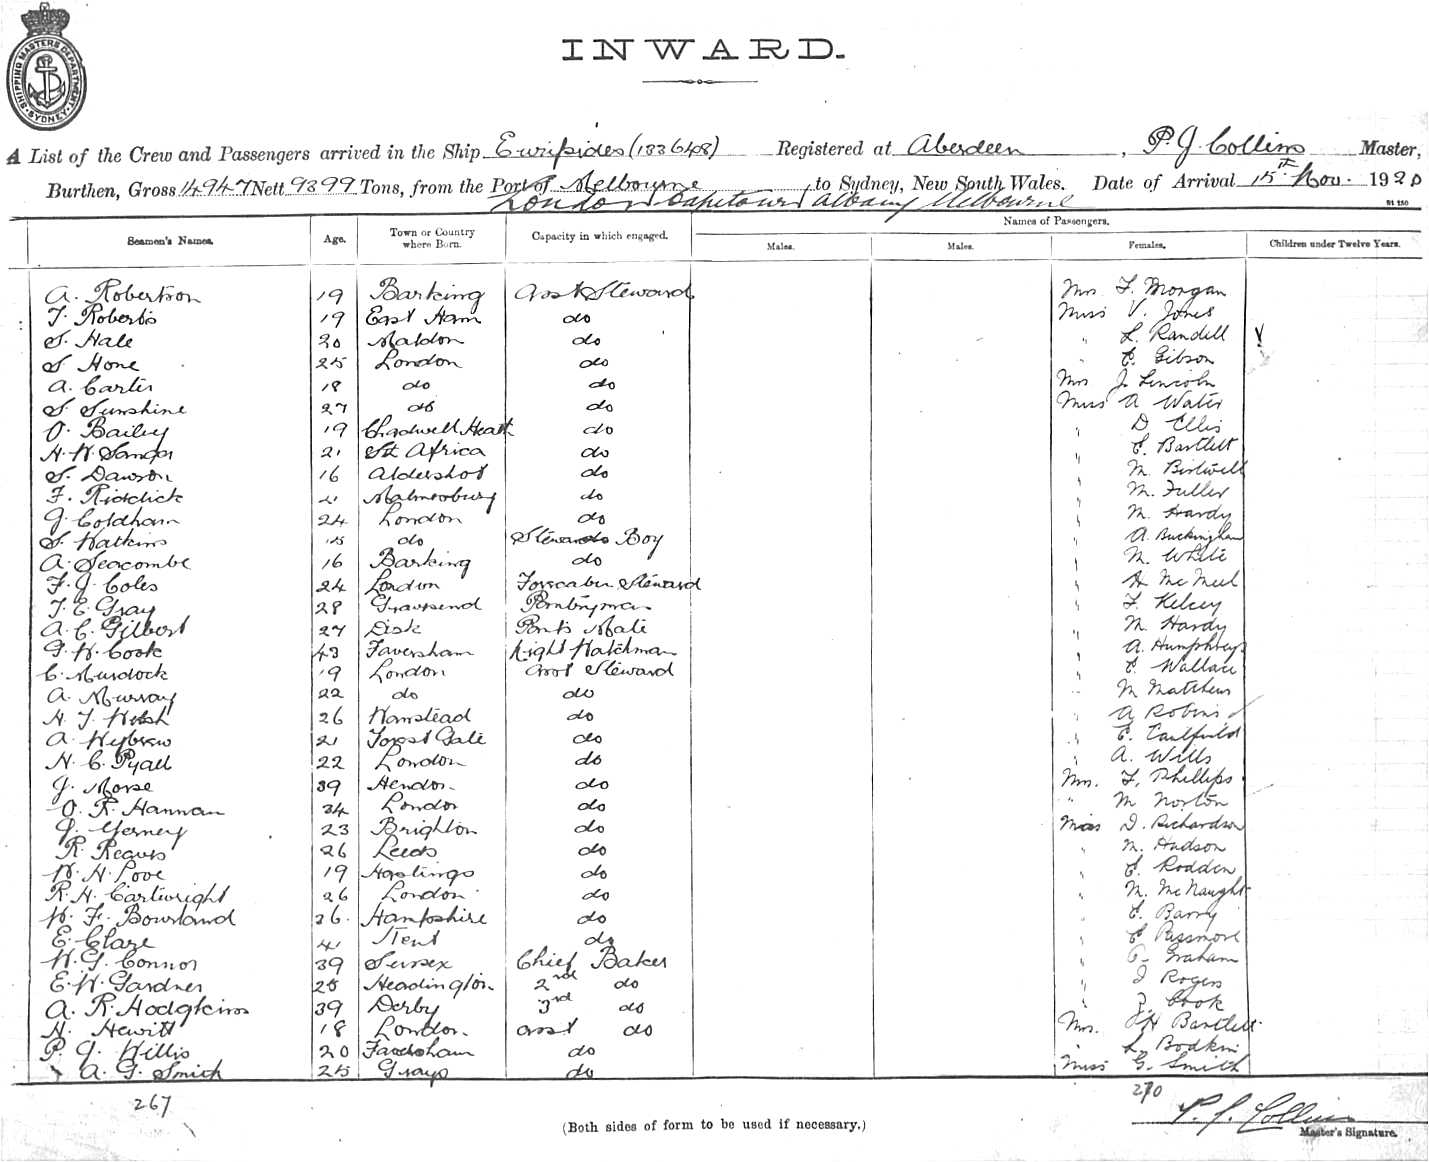 SHIPPING MASTERS DEPARTMENT SYDNEY
INWARD.
A List of the Crew and Passengers arrived in the Ship Euripides (133648) Registered at Aberdeen, P. J. Collins Master,
Burthen, Gross 14947 Nett 9399 Tons, from the Port of Melbourne, to Sydney, New South Wales. Date of Arrival 15th Nov. 1920
London Capetown Albany Melbourne
Seamen's Names. Age. Town or Country where Born. Capacity in which engaged. Names of Passengers.
Males. Males. Females. Children under Twelve Years.
A. Robertson 19 Barking Asst Steward Mrs F. Morgan
T. Roberts 19 East Ham do Miss V. Jones
S. Hale 20 Maldon do " L. Randell
S. Hone 25 London do " E. Gibson
A. Carter 18 do do Mrs J. Lincoln
S. Sunshine 27 do do Miss A Water
O. Bailey 19 Chadwell Heath do " D Ellis
H. W. 21 Sth Africa do " E. Bartlett
S. Dawson 16 Aldershot do " M. Birtwell
F. Riddick 21 Malmesbury do " M. Fuller
J. Coldham 24 London do " M. Hardy
S. Watkins 15 do Stewards Boy " A. Buckingham
A. Seacombe 16 Barking do " M. White
F. J. Coles 24 London Forecabin Steward "
T. E. Gray 28 Gravesend Pantryman " F. Kelsey
A. C. Gilbert 27 Disk Ponts Mate " M. Hardy
G. W. Cook 43 Faversham Night Watchman " A. Humphreys
C. Murdock 19 London Asst Steward " E. Wallace
A. Murray 22 do do " M Matthews
H. J. 26 Wanstead do " A Robins
A. Wybrew 21 Forest Gate do " E. Caulfield
H. C. Pyall 22 London do " A. Wills
J. Morse 39 Hendon do Mrs. F. Phillips
O. R. Hannan 34 London do " M Norton
J. 23 Brighton do Miss D. Richardson
R. Reeves 26 Leeds do " M. Hudson
W. H. Love 19 Hastings do " E. Rodden
R. H. Cartwright 26 London do " M. McNaught
W. F. Bowland 36 Hampshire do " E. Barry
E. Clare 41 Kent do " E Passmore
W. G. Connor 39 Sussex Chief Baker " Graham
E. W. Gardner 25 Headington 2nd do " J Rogers
A. R. Hodgkins 39 Derby 3rd do " Cook
H. Hewitt 18 London asst do Mrs. H Bartlett
P. J. Willis 20 Faversham do " L Bodkin
A. G. Smith 25 Grays do Miss G. Smith
267 270
P. J. Collins
(Both sides of form to be used if necessary.)
Master's Signature.